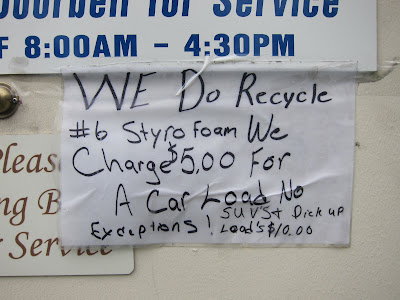 Doorbell for Service
F 8:00AM - 4:30PM
WE Do Recycle
#6 Styrofoam We
Charge $5.00 For
A Car Load No
Exceptions! SUV'S + Pick up
Load's $10.00
Please
ng B
Service